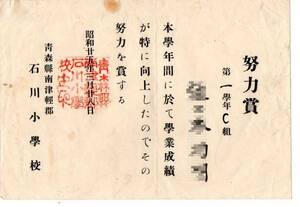 努力賞
第一學年C組
本學年間に於て學業成績
が特に向上したのでその
努力を賞する
昭和廿五年三月廿八日
青森縣南津輕郡
石川小學校